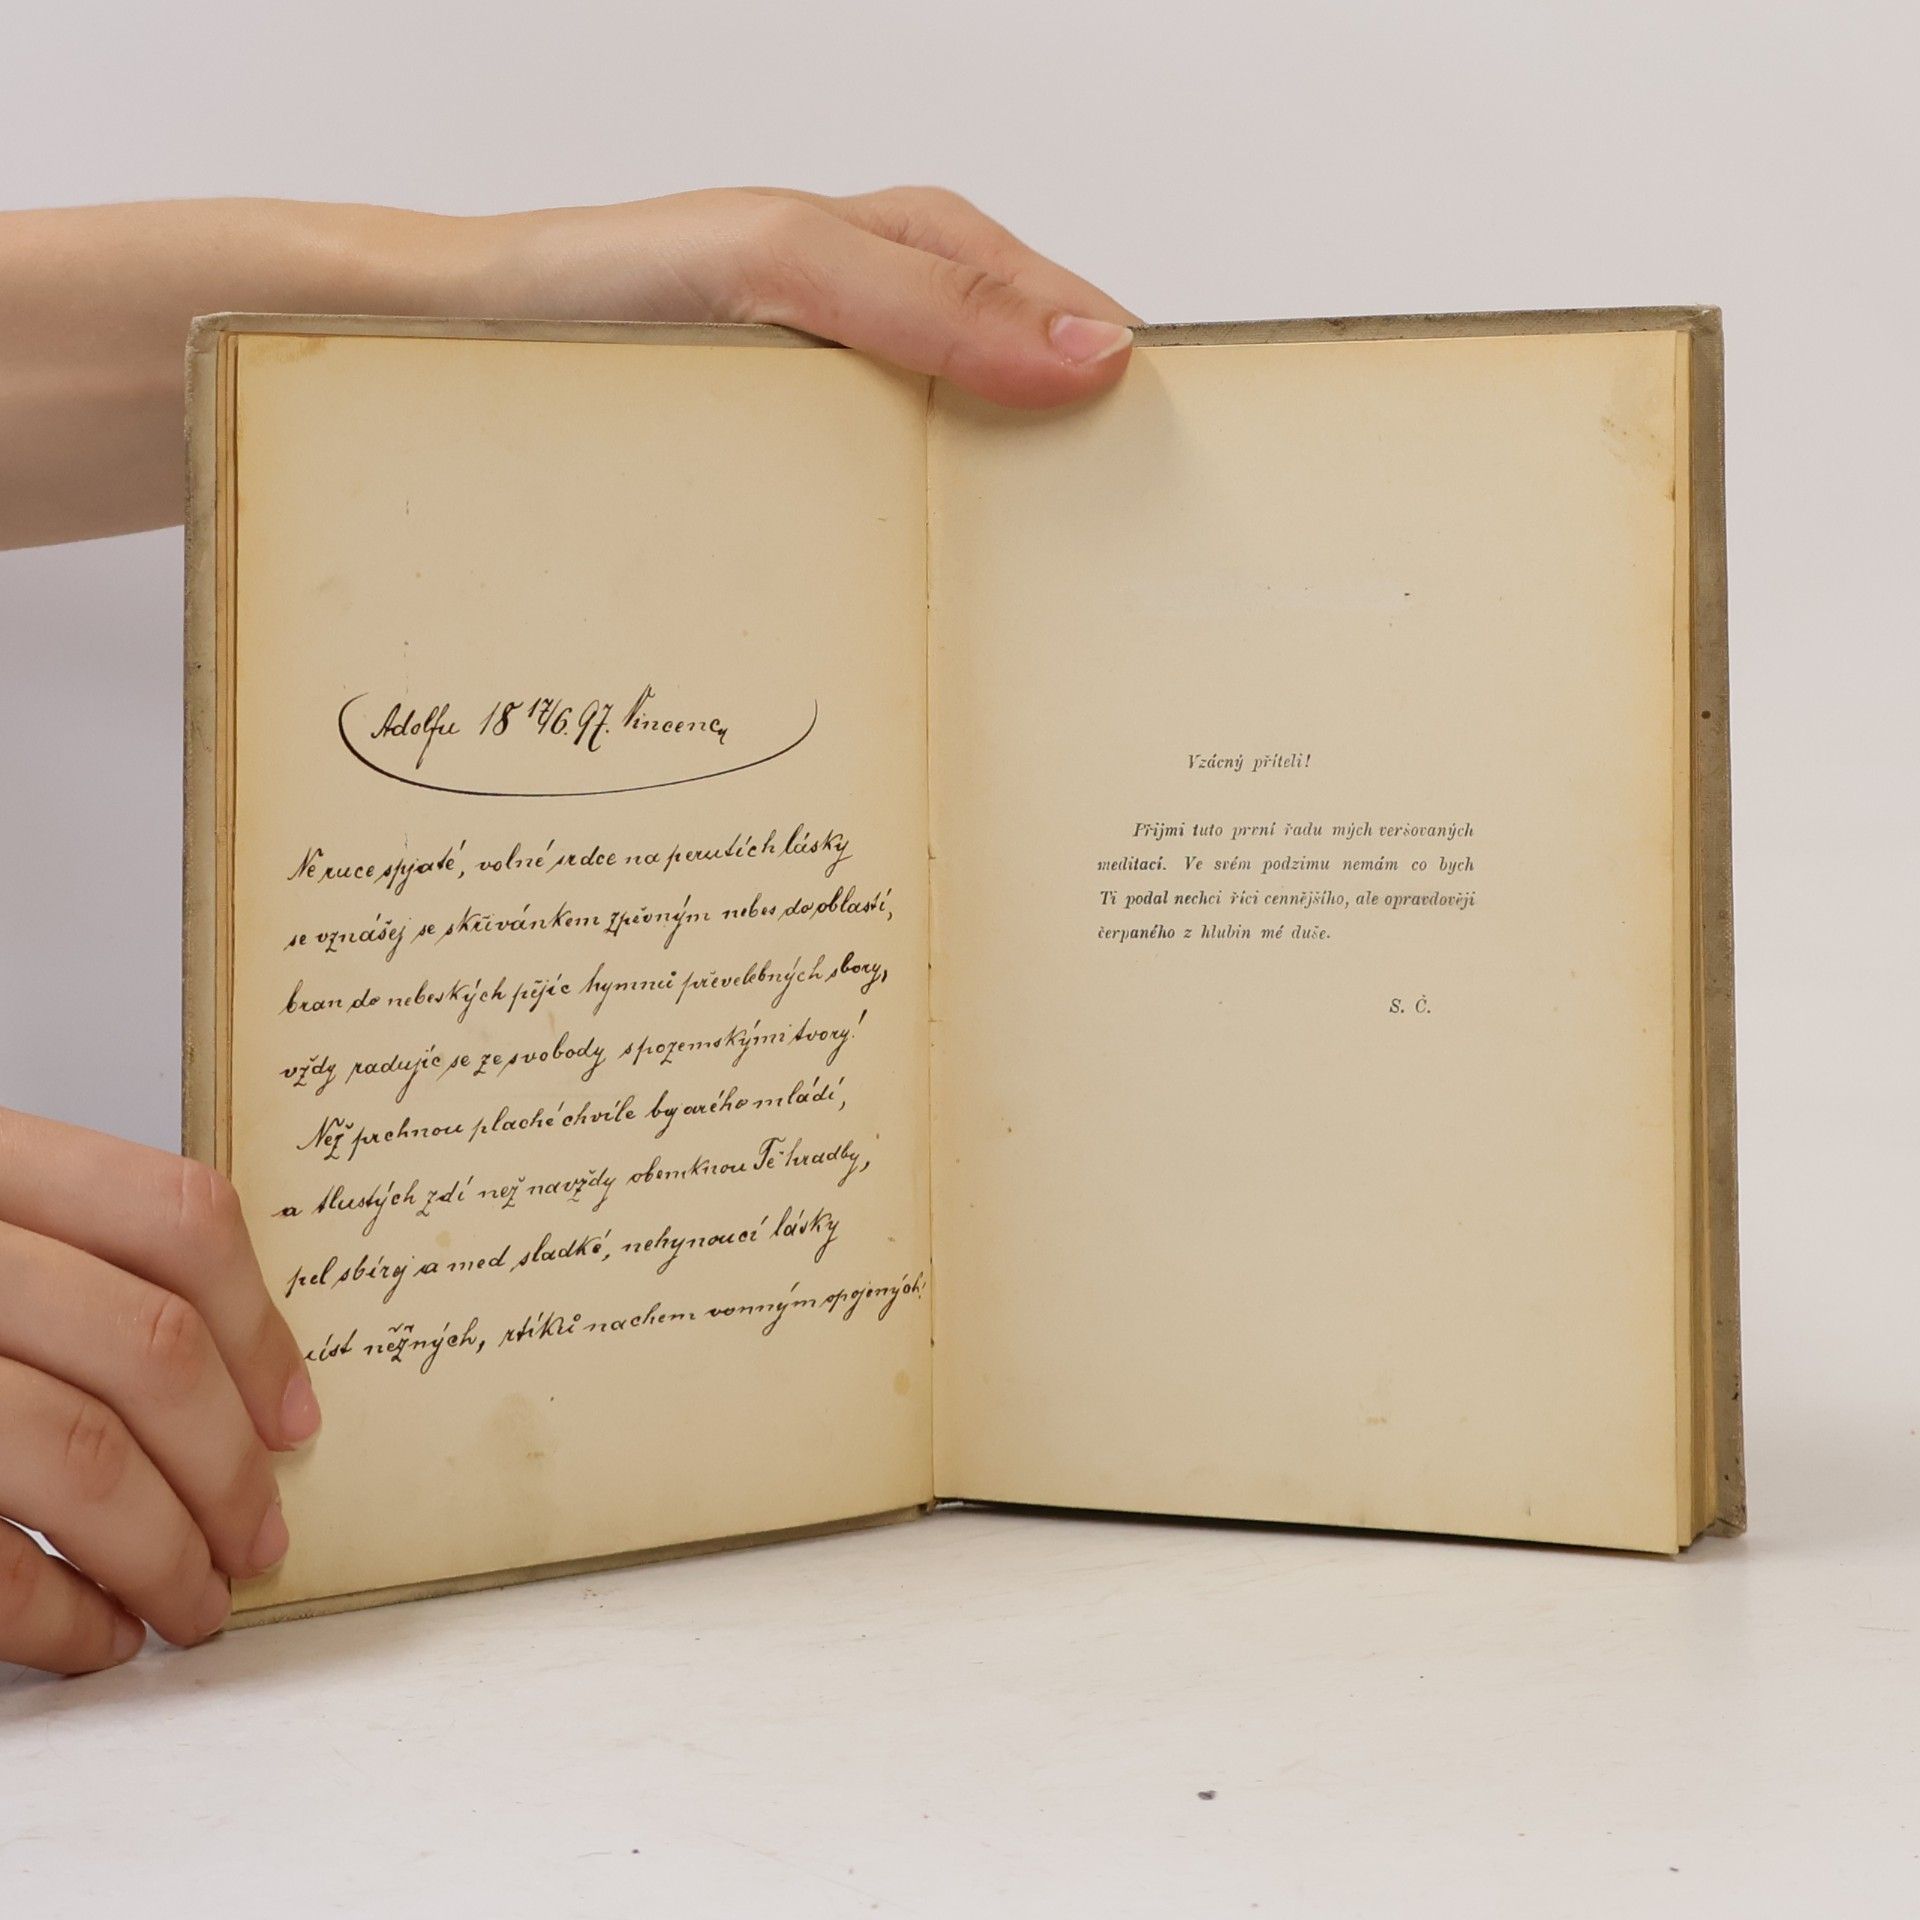 Adolfu 18 17/6. 97. Vincenc
Ne ruce spjaté, volné srdce na perutích lásky
se vznášej se skřivánkem zpěvným nebes do oblastí,
bran do nebeských pějíc hymnů převelebných sbory,
vždy radujíc se ze svobody s pozemskými tvory!
Než prchnou plaché chvíle byarého mládí,
a tlustých zdí než navždy obemknou Tě hradby,
pel sbírej a med sladké, nehynoucí lásky
úst něžných, rtíků nachem vonným spojených!
Vzácný příteli!
Přijmi tuto první řadu mých veršovaných
meditací. Ve svém podzimu nemám co bych
Ti podal nechci říci cennějšího, ale opravdověji
čerpaného z hlubin mé duše.
S. Č.